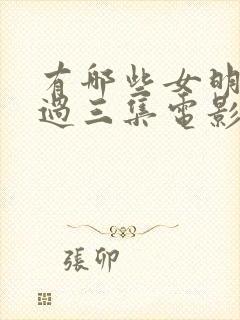 有哪些女明
過三集電影
張卯